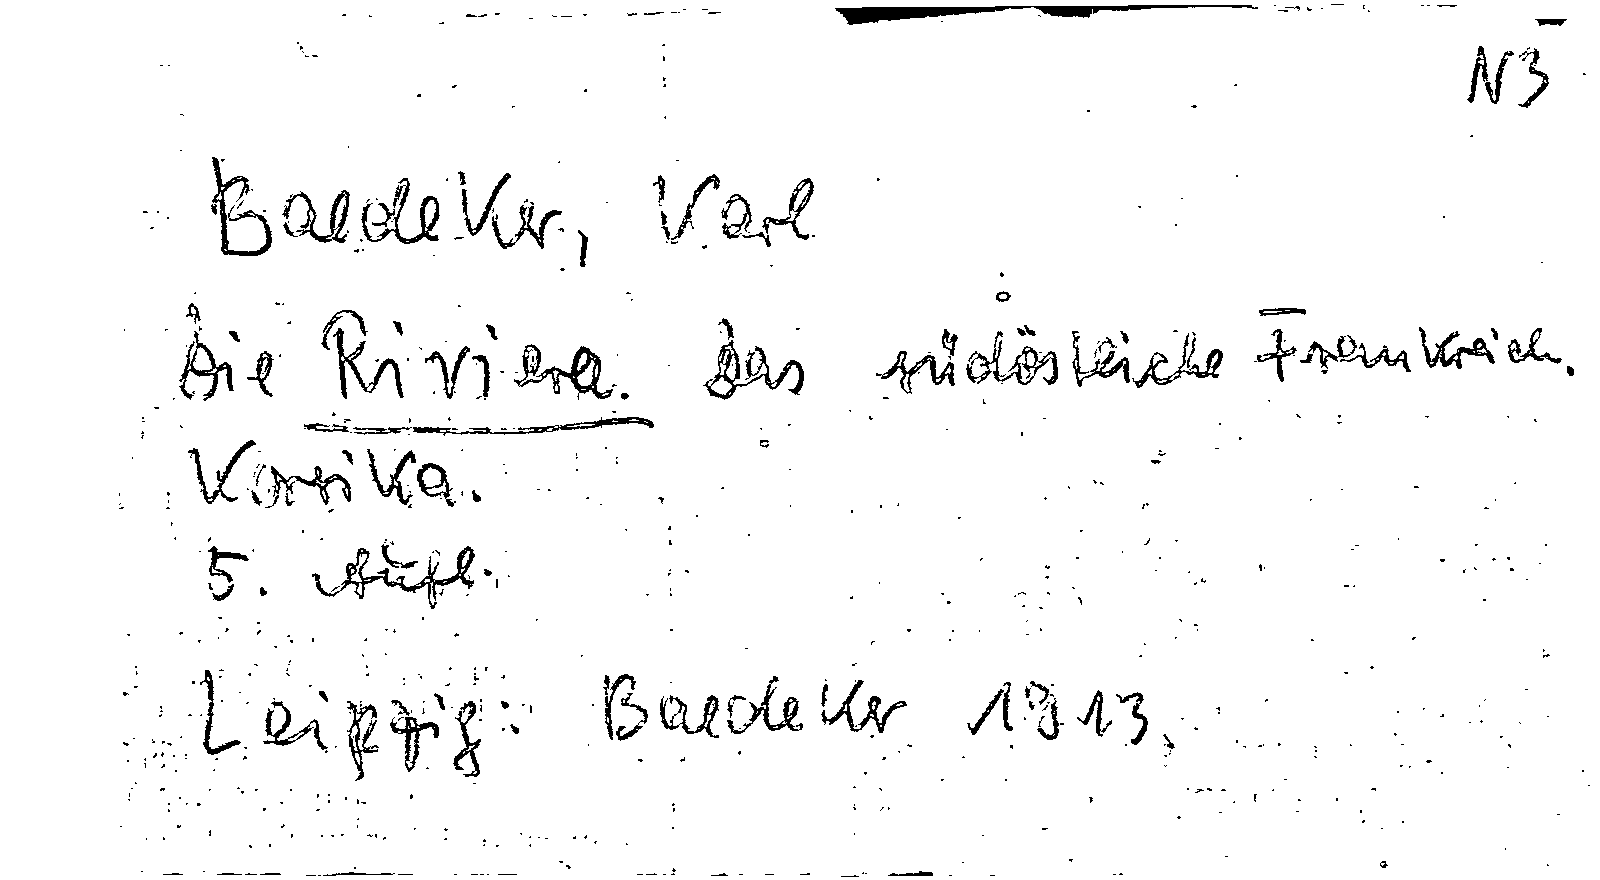 N3
Baedeker, Karl
Die Riviera. Das südöstliche Frankreich.
Korsika.
5. Aufl.
Leipzig: Baedeker 1913.